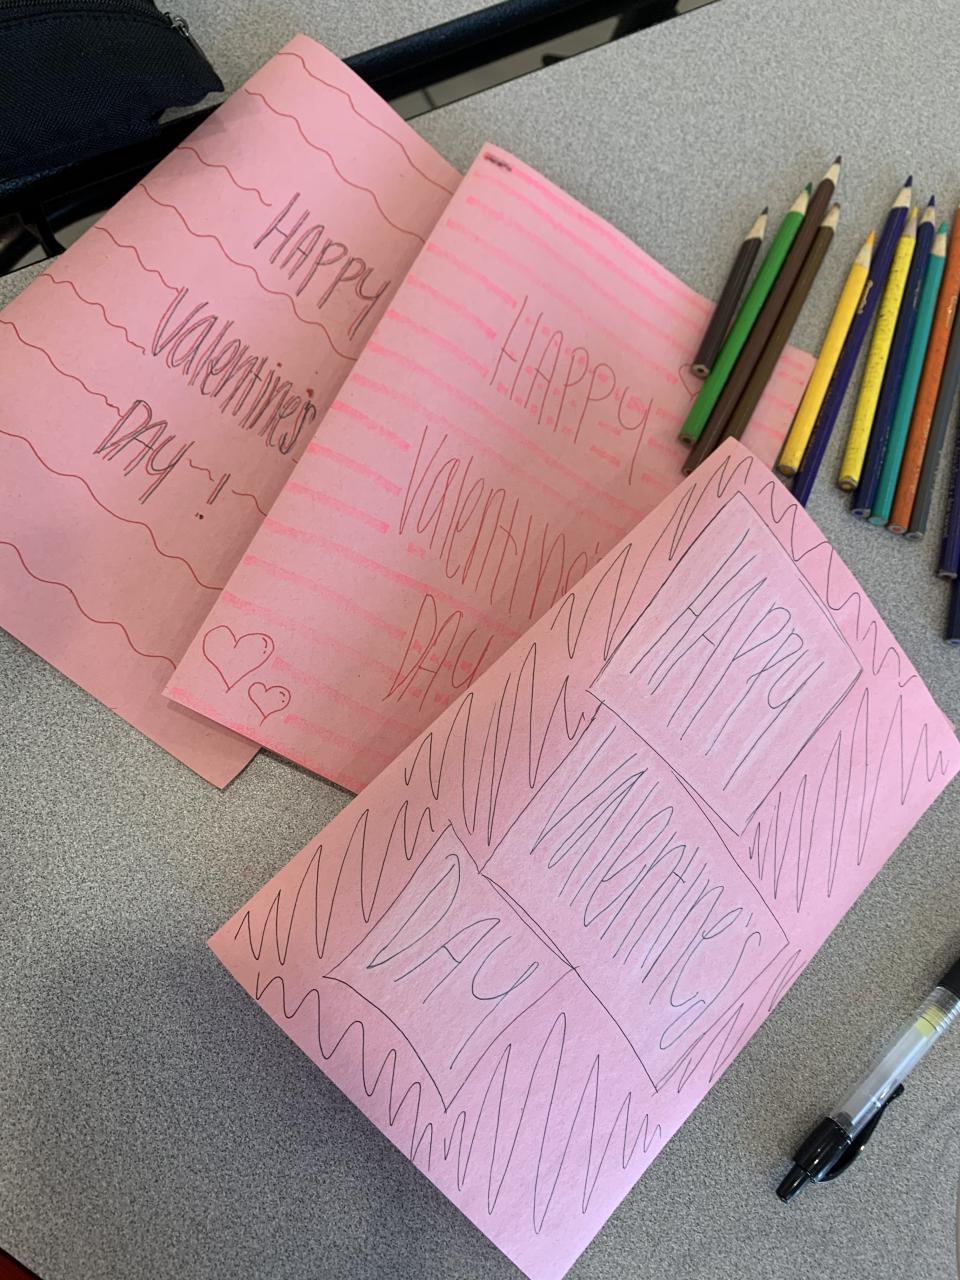 HAPPY
Valentine's
DAY!
HAPPY
Valentine's
DAY
HAPPY
Valentine's
DAY